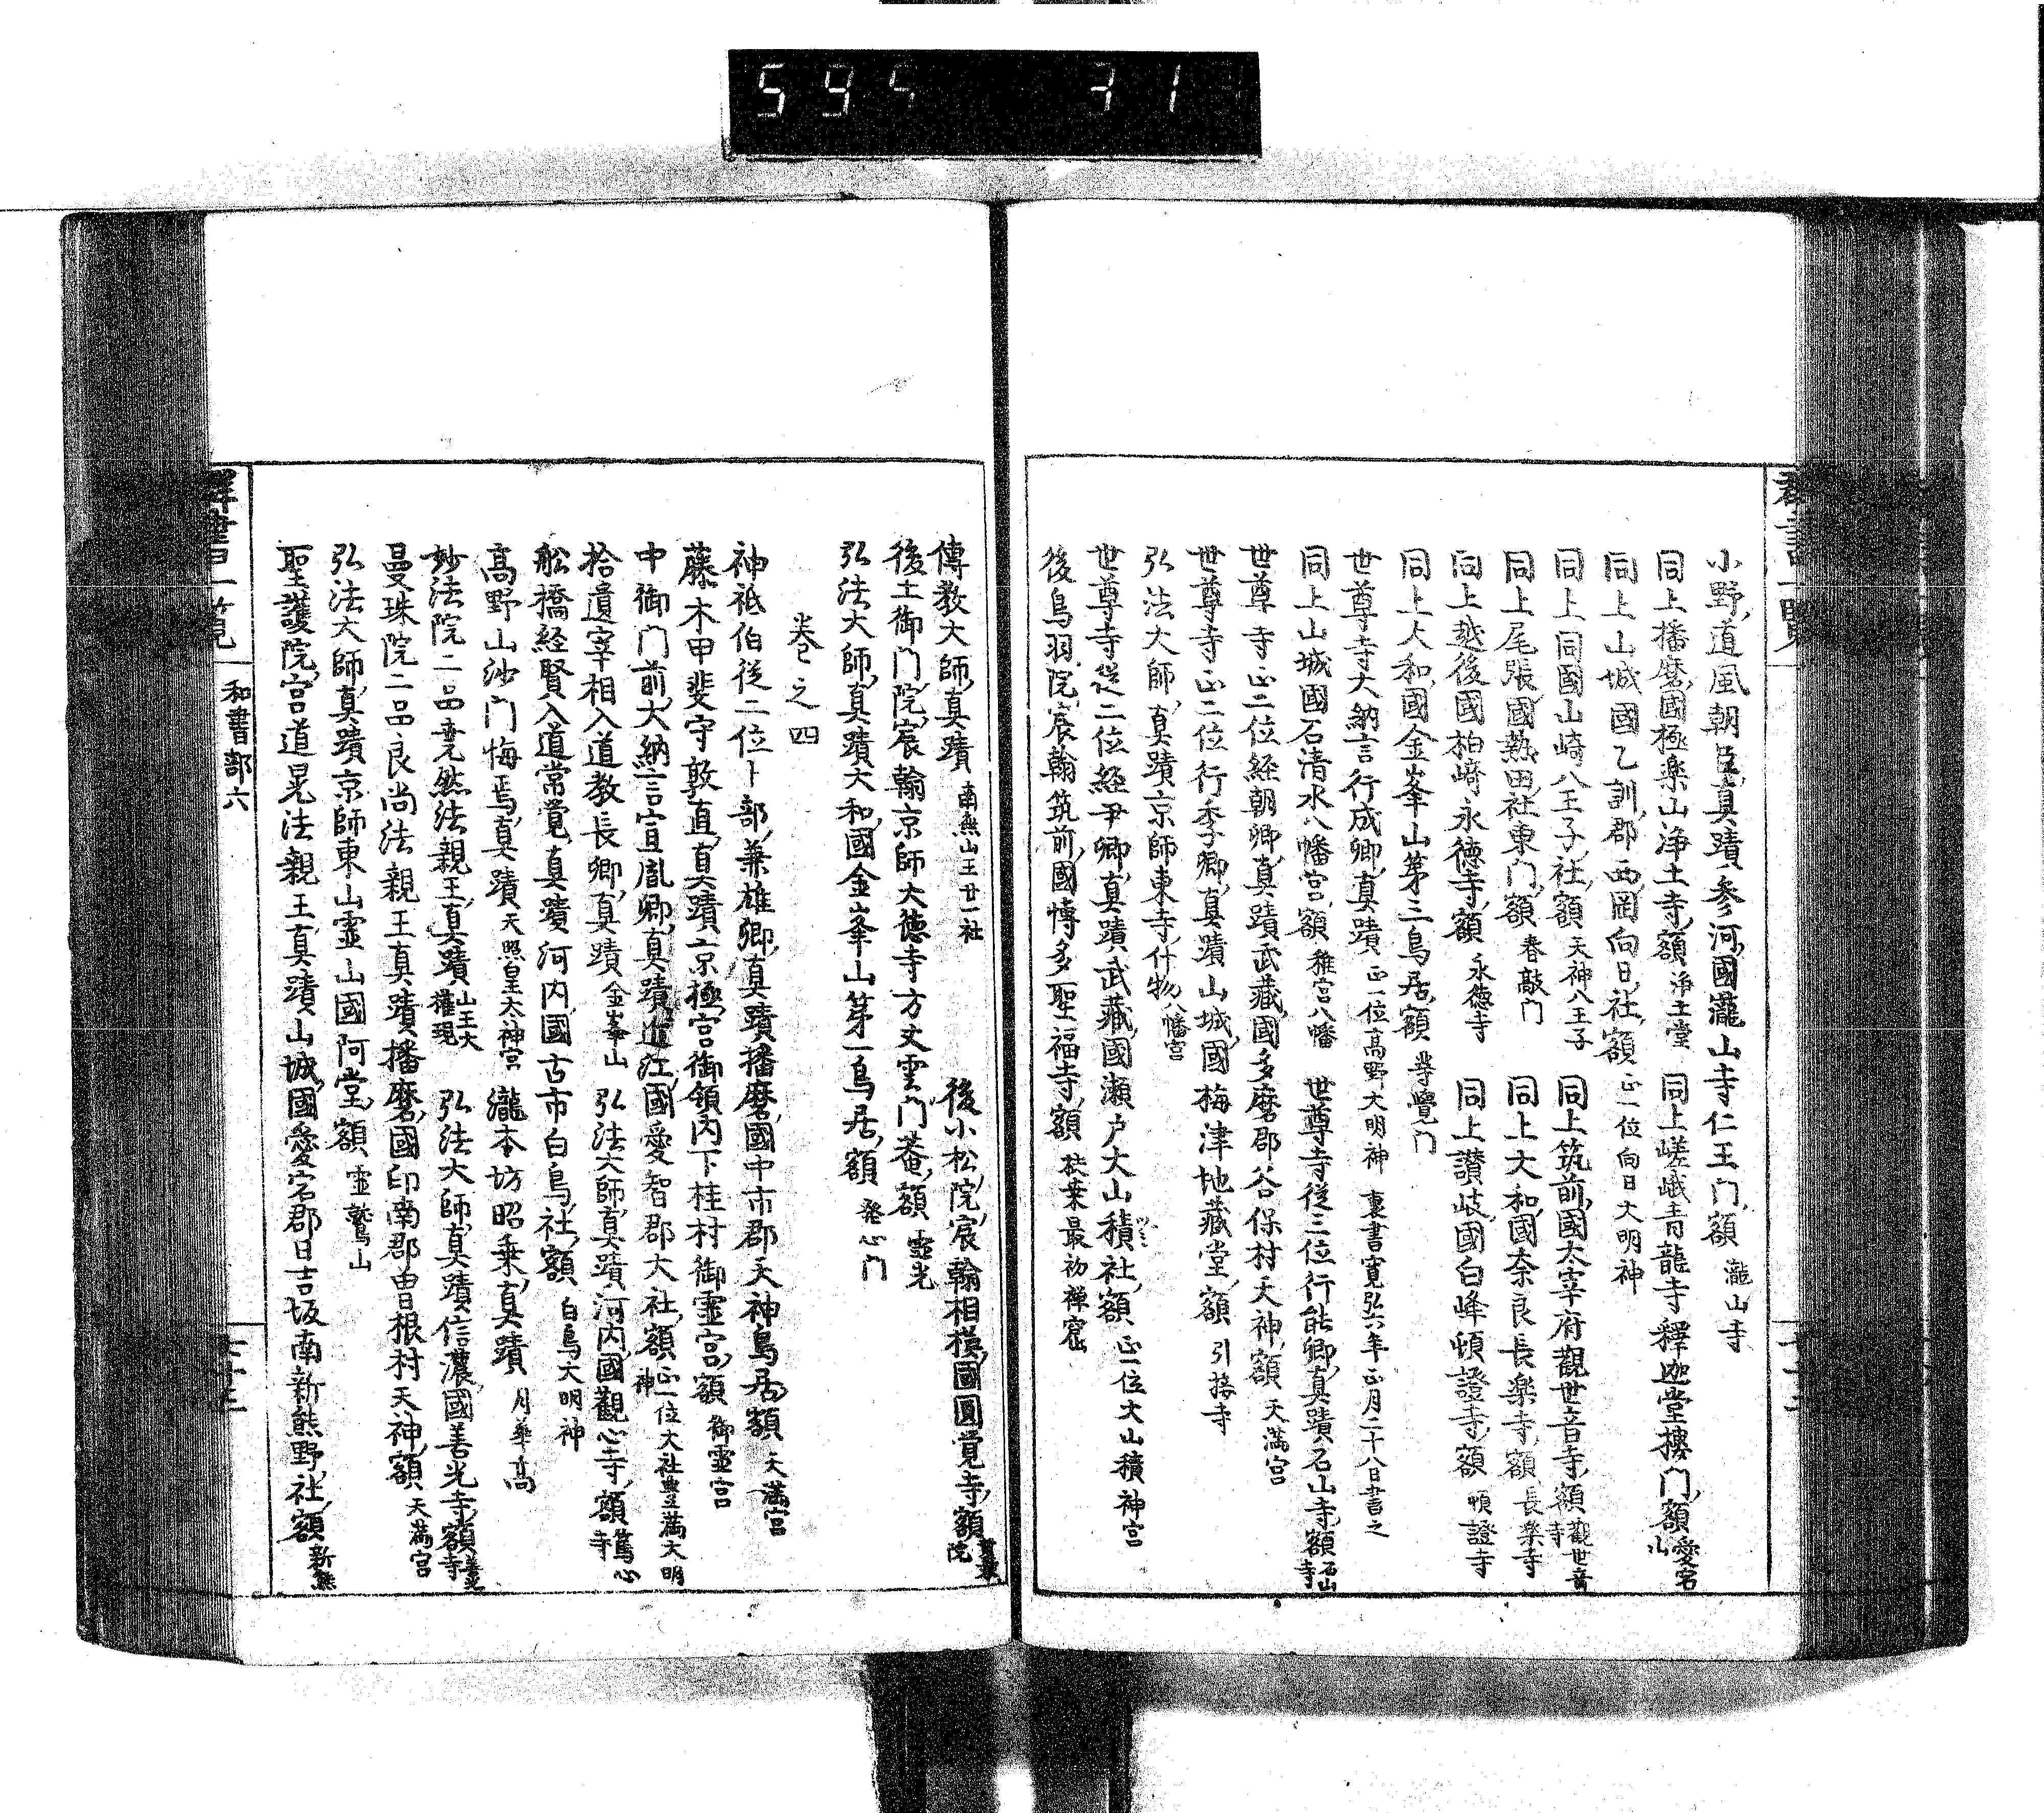 595 31
小野道風朝臣真蹟参河國瀧山寺仁王門額 瀧山寺
同上播磨國極楽山浄土寺額 浄土堂 同上嵯峨青龍寺釋迦堂樓門額 愛宕山
同上山城國乙訓郡西岡向日社額 正一位向日大明神
同上同國山崎八王子社額 天神八王子 同上筑前國太宰府觀世音寺額 觀世音寺
同上尾張國熱田社東門額 春敲門 同上大和國奈良長楽寺額 長楽寺
同上越後國柏崎永徳寺額 永徳寺 同上讃岐國白峰頓證寺額 頓證寺
同上大和國金峯山第三鳥居額 等覺門
世尊寺大納言行成卿真蹟 正一位高野大明神 裏書寛弘六年正月二十八日書之
同上山城國石清水八幡宮額 稚宮八幡 世尊寺従三位行能卿真蹟石山寺額 石山寺
世尊寺正二位経朝卿真蹟武藏國多磨郡谷保村天神額 天滿宮
世尊寺正二位行季卿真蹟山城國梅津地藏堂額 引接寺
弘法大師真蹟京師東寺什物 八幡宮
世尊寺従二位経尹卿真蹟武藏國瀬戸大山積社額 正一位大山積神宮
後鳥羽院宸翰筑前國博多聖福寺額 扶桒最初禅窟
傳教大師真蹟 南無山王廿一社 後小松院宸翰相模國圓覚寺額
後土御門院宸翰京師大徳寺方丈雲門菴額 靈光
弘法大師真蹟大和國金峯山第一鳥居額 発心門
巻之四
神祇伯従二位卜部兼雄卿真蹟播磨國中市郡天神鳥居額 天滿宮
藤木甲斐守敦直真蹟京極宮御領内下桂村御靈宮額 御靈宮
中御门前大納言宣胤卿真蹟近江國愛智郡大社額 正一位大社豊滿大明神
拾遺宰相入道教長卿真蹟 金峯山 弘法大師真蹟河内國觀心寺額
舩橋経賢入道常覚真蹟河内國古市白鳥社額 白鳥大明神
高野山沙门悔焉真蹟 天照皇太神宮 瀧本坊昭乗真蹟 月華髙
妙法院二品尭然法親王真蹟 山王大権現 弘法大師真蹟信濃國善光寺額 善光寺
曼珠院二品良尚法親王真蹟播磨國印南郡曽根村天神額 天滿宮
弘法大師真蹟京師東山霊山國阿堂額 霊鷲山
聖護院宮道晃法親王真蹟山城國愛宕郡日吉坂南新熊野社額 新熊
群書一覧 和書部六